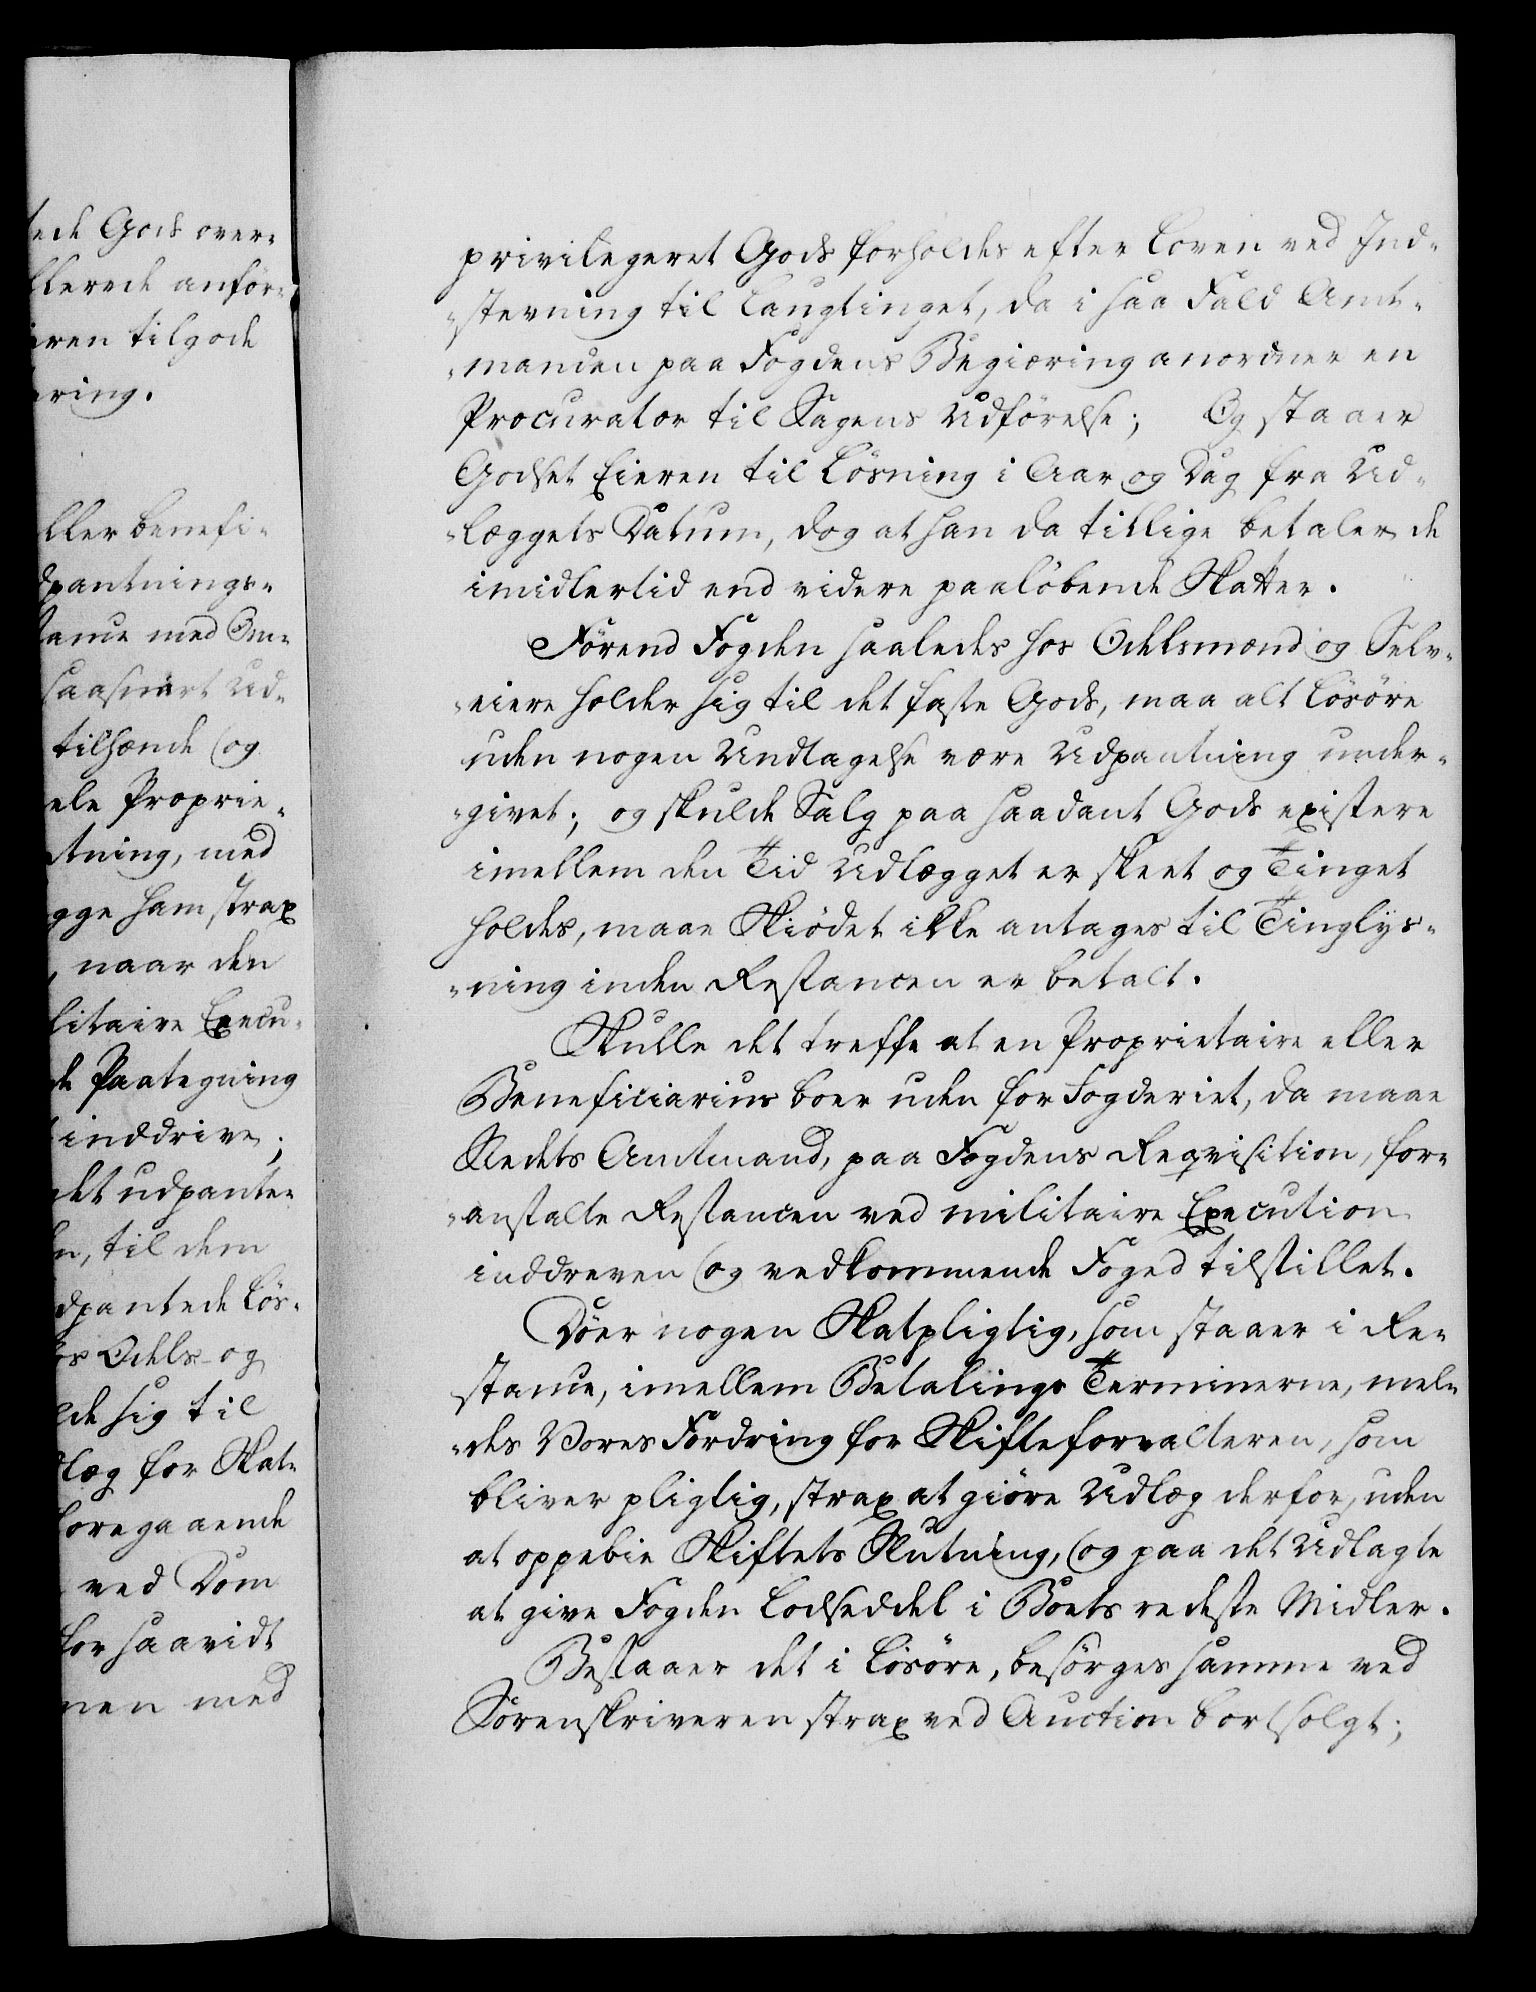 tede Gods over-
llerede anför-
iren tilgode
ering.
ller benefi-
dpantnings-
tance med Om-
saasnart Ud-
tilhænde og
ele Proprie-
tning, med
gge ham strax
, naar den
litaire Execu-
de Paategning
inddrive;
det udpante-
n, til dem
dpantede Lös-
os Odels- og
lde sig til
læg for Skat-
foregaaende
ved Dom
for saavidt
nen med
privilegeret Gods forholdes efter Loven ved Ind-
-stevning til Laugtinget, da i saa Fald Amt-
-manden paa Fogdens Begiæring anordner en
Procurator til Sagens Udförelse; Og staaer
Godset Eieren til Lösning i Aar og Dag fra Ud-
-læggets Datum, dog at han da tillige betaler de
imidlertid end videre paalöbende Skatter.
Förend Fogden saaledes hos Odelsmænd og Selv-
-eiere holder sig til det faste Gods, maa alt Lösöre
uden nogen Undtagelse være Udpantning under-
-givet; og skulde Salg paa saadant Gods existere
imellem den Tid Udlægget er skeet og Tinget
holdes, maae Skiödet ikke antages til Tinglys-
-ning inden Restancen er betalt.
Skulle det treffe at en Proprietaire eller
Beneficiarius boer uden for Fogderiet, da maae
Stedets Amtmand, paa Fogdens Reqvisition, for-
-anstalte Restancen ved militaire Execution
inddreven og vedkommende Foged tilstillet.
Döer nogen Skatpligtig, som staaer i Re-
stance, imellem Betalings Terminerne, mel-
-des Vores Fordring for Skifteforvalteren, som
bliver pligtig, strax at giöre Udlæg derfor, uden
at oppebie Skiftets Slutning, og paa det Udlagte
at give Fogden Lodseddel i Boets redeste Midler.
Bestaaer det i Lösöre, besörges samme ved
Sörenskriveren strax ved Auction bortsolgt;